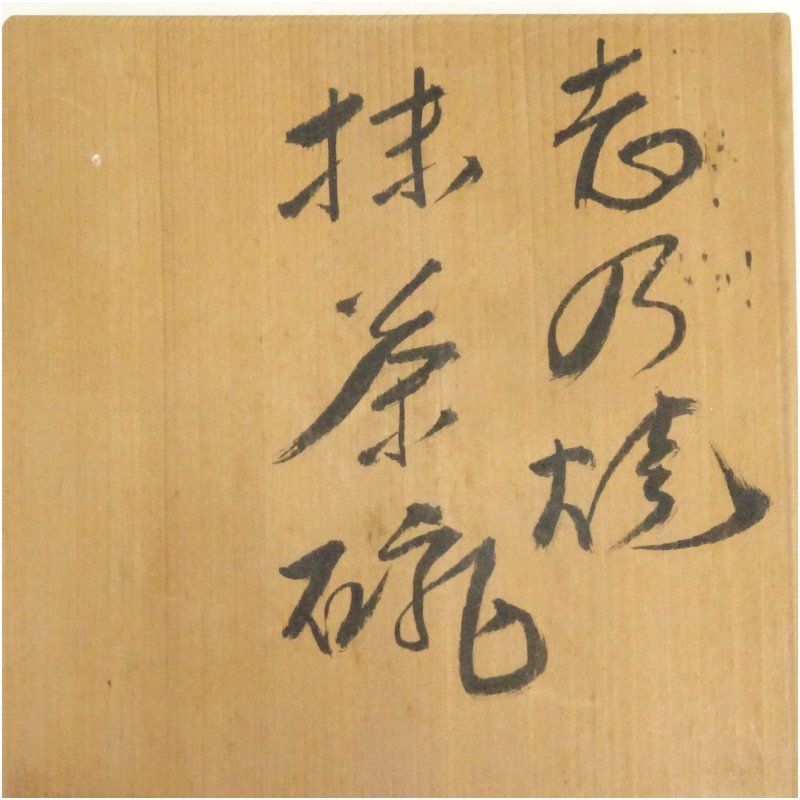 志乃焼
抹茶碗